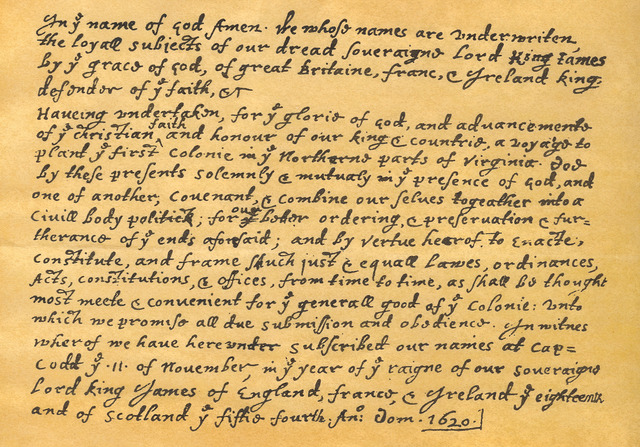 In yͤ name of god Amen· We whose names are vnderwriten,
the loyall subjects of our dread soveraigne Lord King James
by yͤ grace of god, of great Britaine, franc, & Ireland king,
defender of yͤ faith, &c
Haveing vndertaken, for yͤ glorie of god, and advancemente
of yͤ christian ^faith and honour of our king & countrie, a voyage to
plant yͤ first colonie in yͤ Northerne parts of virginia· doe
by these presents solemnly & mutualy in yͤ presence of god, and
one of another, covenant, & combine our selves togeather into a
civill body politick; for ^our yͤ better ordering, & preservation & fur=
therance of yͤ ends aforesaid; and by vertue hearof to enacte,
constitute, and frame shuch just & equall lawes, ordinances,
Acts, constitutions, & offices, from time to time, as shall be thought
most meete & convenient for yͤ generall good of yͤ colonie: vnto
which we promise all due submission and obedience. In witnes
wherof we have hereunder subscribed our names at cap=
Codd yͤ ·11· of November, in yͤ year of yͤ raigne of our soveraigne
Lord king James of England, france, & Ireland yͤ eighteenth
and of scotland yͤ fiftie fourth. Anͦ: Dom. 1620.]